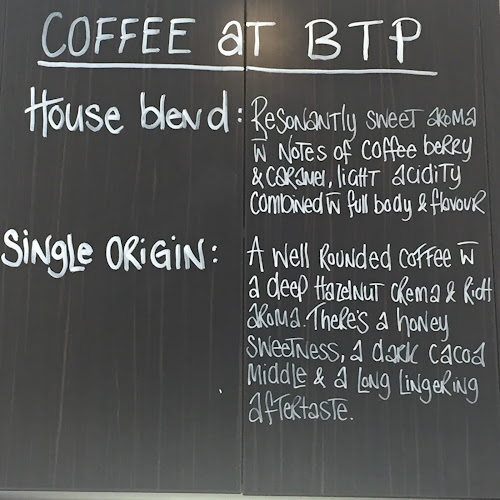 COFFEE aT BTP
House blend: Resonantly sweet aroma
w̅ notes of coffee berry
& caramel, light acidity
combined w̅ full body & flavour
Single Origin: A well rounded coffee w̅
a deep hazelnut crema & rich
aroma. There's a honey
sweetness, a dark cacoa
middle & a long lingering
aftertaste.